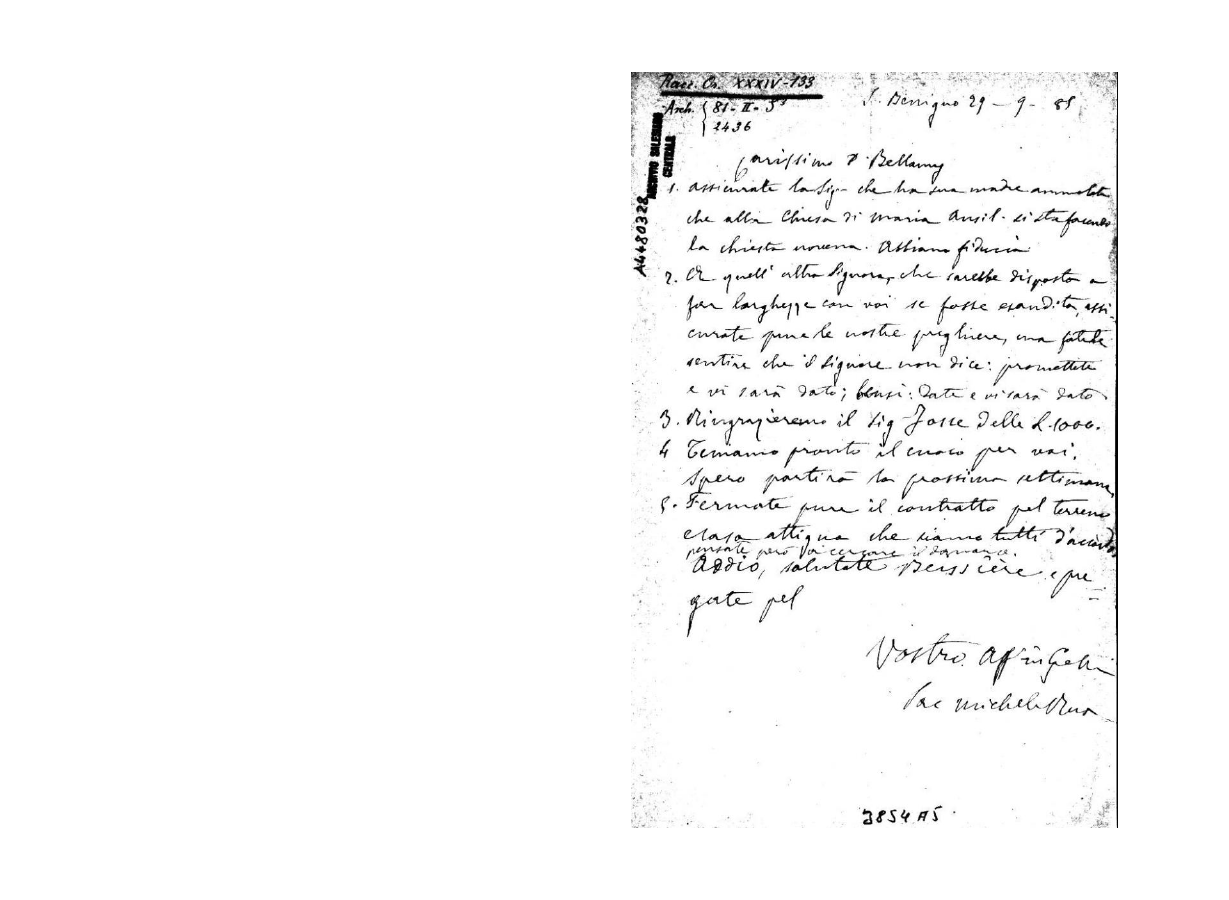 Racc. Or. XXXIV-133
Arch. { 81-II-3
2436
S. Benigno 29 - 9 - 85
ARCHIVIO SALESIANO
CENTRALE
A4480328
Carissimo D. Bellamy
1. Assicurate la Sig.ra che ha sua madre ammalata
che alla Chiesa di Maria Ausil. si sta facendo
la chiesta novena. Abbiamo fiducia.
2. A quell'altra Signora, che sarebbe disposta a
far larghezze con voi se fosse esaudita, assi-
curate pure le nostre preghiere, ma fatele
sentire che il Signore non dice: promettete
e vi sarà dato; bensì: Date e vi sarà dato
3. Ringrazieremo il Sig. Josse delle L. 1000.
4 Teniamo pronto il cuoco per voi.
Spero partirà la prossima settimana
5. Fermate pure il contratto pel terreno
e casa attigua che siamo tutti d'accordo
pensate però voi cercare il danaro.
Addio, salutate Beissière e pre
gate pel
Vostro Aff in G. e M.
Sac Michele Rua
3854 A5